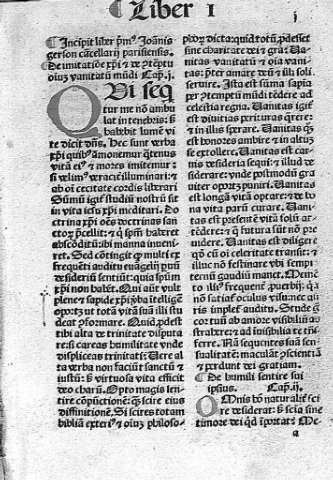 Liber I
j
Incipit liber pm⁹. Joãnis
gerson cãcellarij parisiensis.
De imitatiõe xp̃i ⁊ de ꝯtẽptu
oĩuʒ vanitatũ mũdi Cap̃.j.
QUi seq̃
tur me nõ ambu
lat in tenebris: sʒ
habebit lumẽ vi
te dicit dñs. Hec sunt verba
xp̃i quibꝰ amonemur q̃tenus
vitã eiꝰ ⁊ mores imitemur:
si velimꝰ veraciť illuminari: ⁊
ab oĩ cecitate cordis liberari
Sumũ igiť studiũ nostrũ sit
in vita iesu xp̃i meditari. Do
ctrina xp̃i oẽs doctrinas san
ctoꝝ p̃cellit: ⁊ q̃ spm̃ haberet
abscõditũ ibi manna inveni
ret. Sed cõtingit ꝙ multi ex
frequẽti auditu euãgelij paruũ
desideriũ sentiũt: quia spm̃
xp̃i non habẽt. Qui aũt vult
plene ⁊ sapide xp̃i ṽba ĩtelligẽ
oportʒ ut totã vitã suã illi stu
deat ꝯformare. Quid ꝓdest
tibi alta de trinitate disputa
re: si careas humilitate unde
displiceas trinitati: Uere al
ta verba non faciũt sanctũ ⁊
iustũ: sʒ virtuosa vita efficit
deo charũ. Opto magis sen
tire cõpũctionẽ: q̃ scire eius
diffinitionẽ. Si scires totam
bibliã exteriꝰ ⁊ oĩuʒ philoso-
phoꝝ dicta: quid totũ ꝓdesset
sine charitate dei ⁊ gr̃a: Ua
nitas vanitatũ ⁊ oĩa vani
tas: p̃ter amare deũ ⁊ illi soli
seruire. Ista est sũma sapia
per ꝯtemptũ mũdi tẽdere ad
celestia regna. Uanitas igiť
est divitias perituras q̃rere
⁊ in illis sperare. Uanitas q̃ʒ
est honores ambire ⁊ in altũ
se extollere. Uanitas est car
nis desideria sequi: ⁊ illud de
siderare: vnde postmodũ gra
uiter oportʒ puniri. Uanitas
est longã vitã optare: ⁊ de bo
na vita parũ curare. Uanitas
est p̃sentẽ vitã solũ at
tẽdere: ⁊ q̃ futura sũt nõ pre
uidere. Uanitas est diligere
qđ cũ oĩ celeritate transit: ⁊
illuc nõ festinare vbi sempi
ternũ gaudiũ manet. Memẽ
to illiꝰ frequenť ꝓuerbij: q̃ a
nõ satiať oculus visu: nec au
ris impleť auditu. Stude g̃
cor tuũ ab amore visibiliũ ab
strahere: ⁊ ad ĩuisibilia te trã
sferre. Nã sequentes suã sen
sualitatẽ: maculãt ꝯscientiã
⁊ perdunt dei gratiam.
De humili sentire sui
ipsius. Cap̃.ij.
OMnis hõ naturaliť sci
re desiderat: sʒ sciã sine
timore dei qđ ĩportat: Me-
a